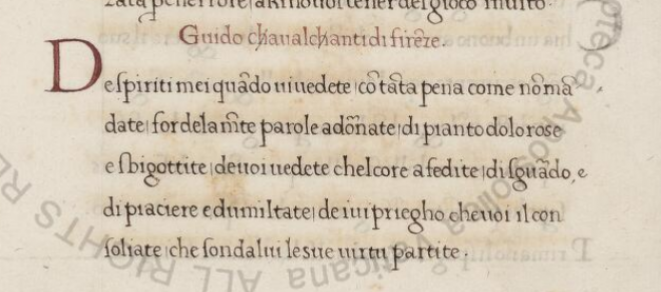 Guido cħaualcħanti di firēze.
Deſpiriti mei quādo ui uedete cōtāta pena come nōmā
date fordela mēte parole adōnate di pianto dolorose
e ſbigottite deuoi uedete chel core a fedite di ſguādo, e
di piaciere ed umiltate de iui priegho che uoi il con
ſoliate che ſondalui le sue uirtu partite.